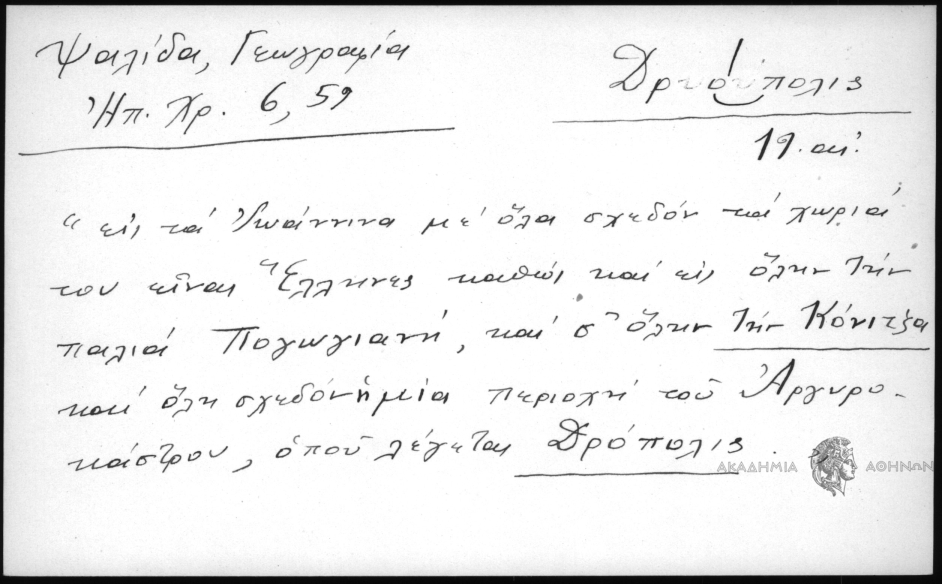 Ψαλίδα, Γεωγραφία
Ἠπ. Χρ. 6, 59
Δρυούπολις
19. αἰ.
“ εἰς τά Ἰωάννινα μέ ὅλα σχεδόν τά χωριά
του εἶναι Ἕλληνες καθώς καί εἰς ὅλην τήν
παλιά Πογωγιανή, καί σ' ὅλην τήν Κόνιτζα
καί ὅλη σχεδόν ἡ μία περιοχή τοῦ Ἀργυρο-
κάστρου, ὁποῦ λέγεται Δρόπολις.
ΑΚΑΔΗΜΙΑ ΑΘΗΝΩΝ